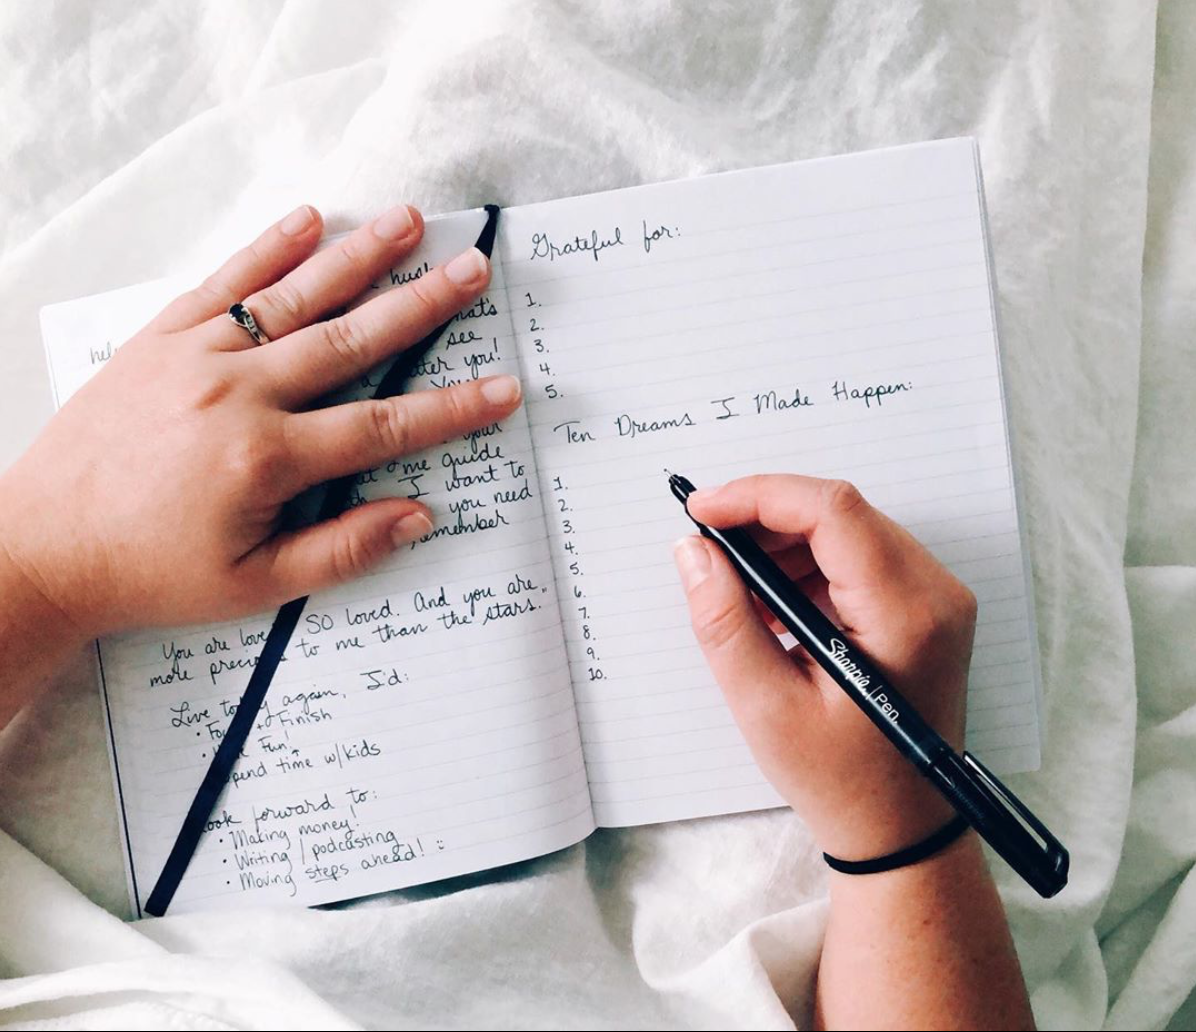 hat's
see
you!
your
me guide
I want to
you need
remember
You are love SO loved. And you are
more precious to me than the stars."
Live today again, I'd:
• Focus + Finish
• Fun!
• Spend time w/kids
Look forward to:
• Making money!
• Writing / podcasting
• Moving steps ahead! :)
Grateful for:
1.
2.
3.
4.
5.
Ten Dreams I Made Happen:
1.
2.
3.
4.
5.
6.
7.
8.
9.
10.
Sharpie | Pen.